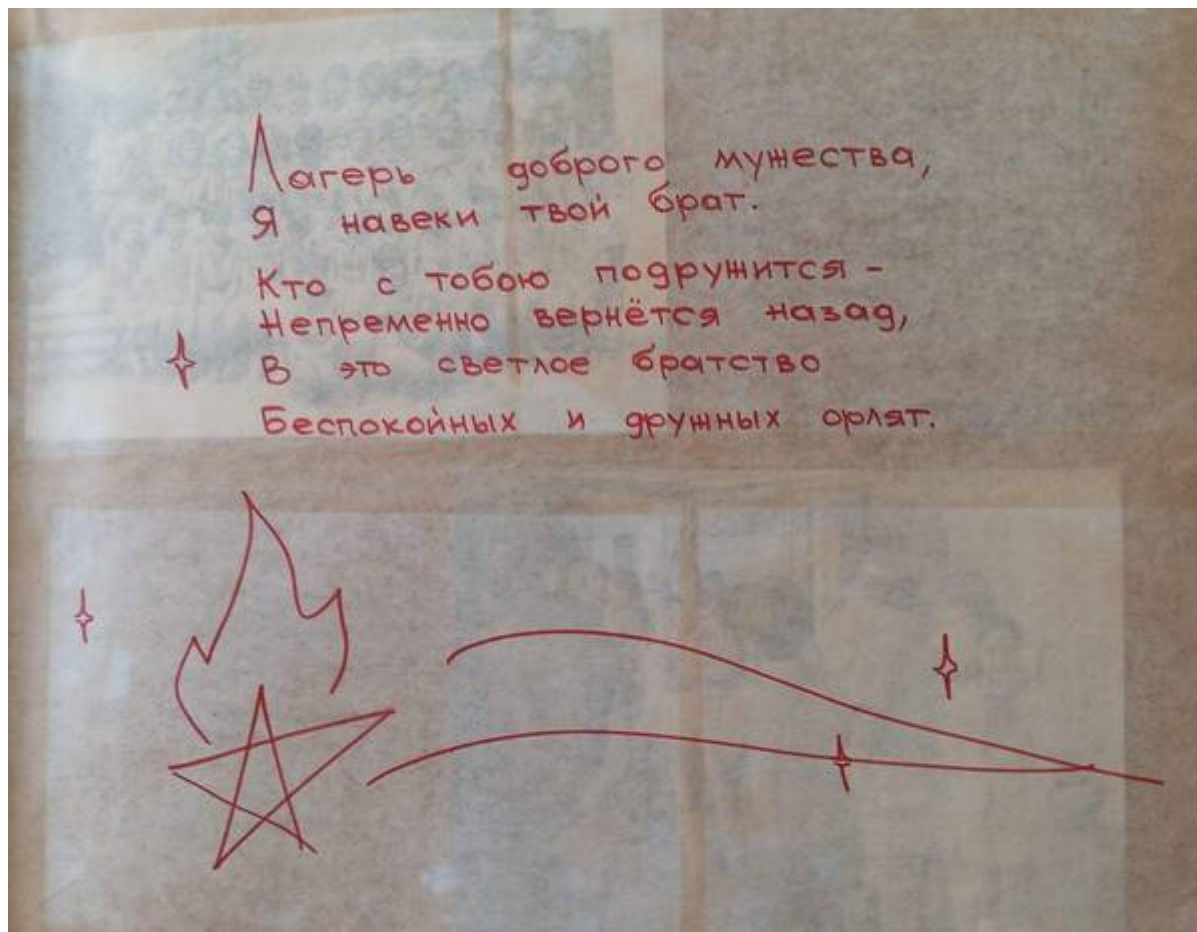 Лагерь доброго мужества,
Я навеки твой брат.
Кто с тобою подружится -
Непременно вернётся назад,
В это светлое братство
Беспокойных и дружных орлят.